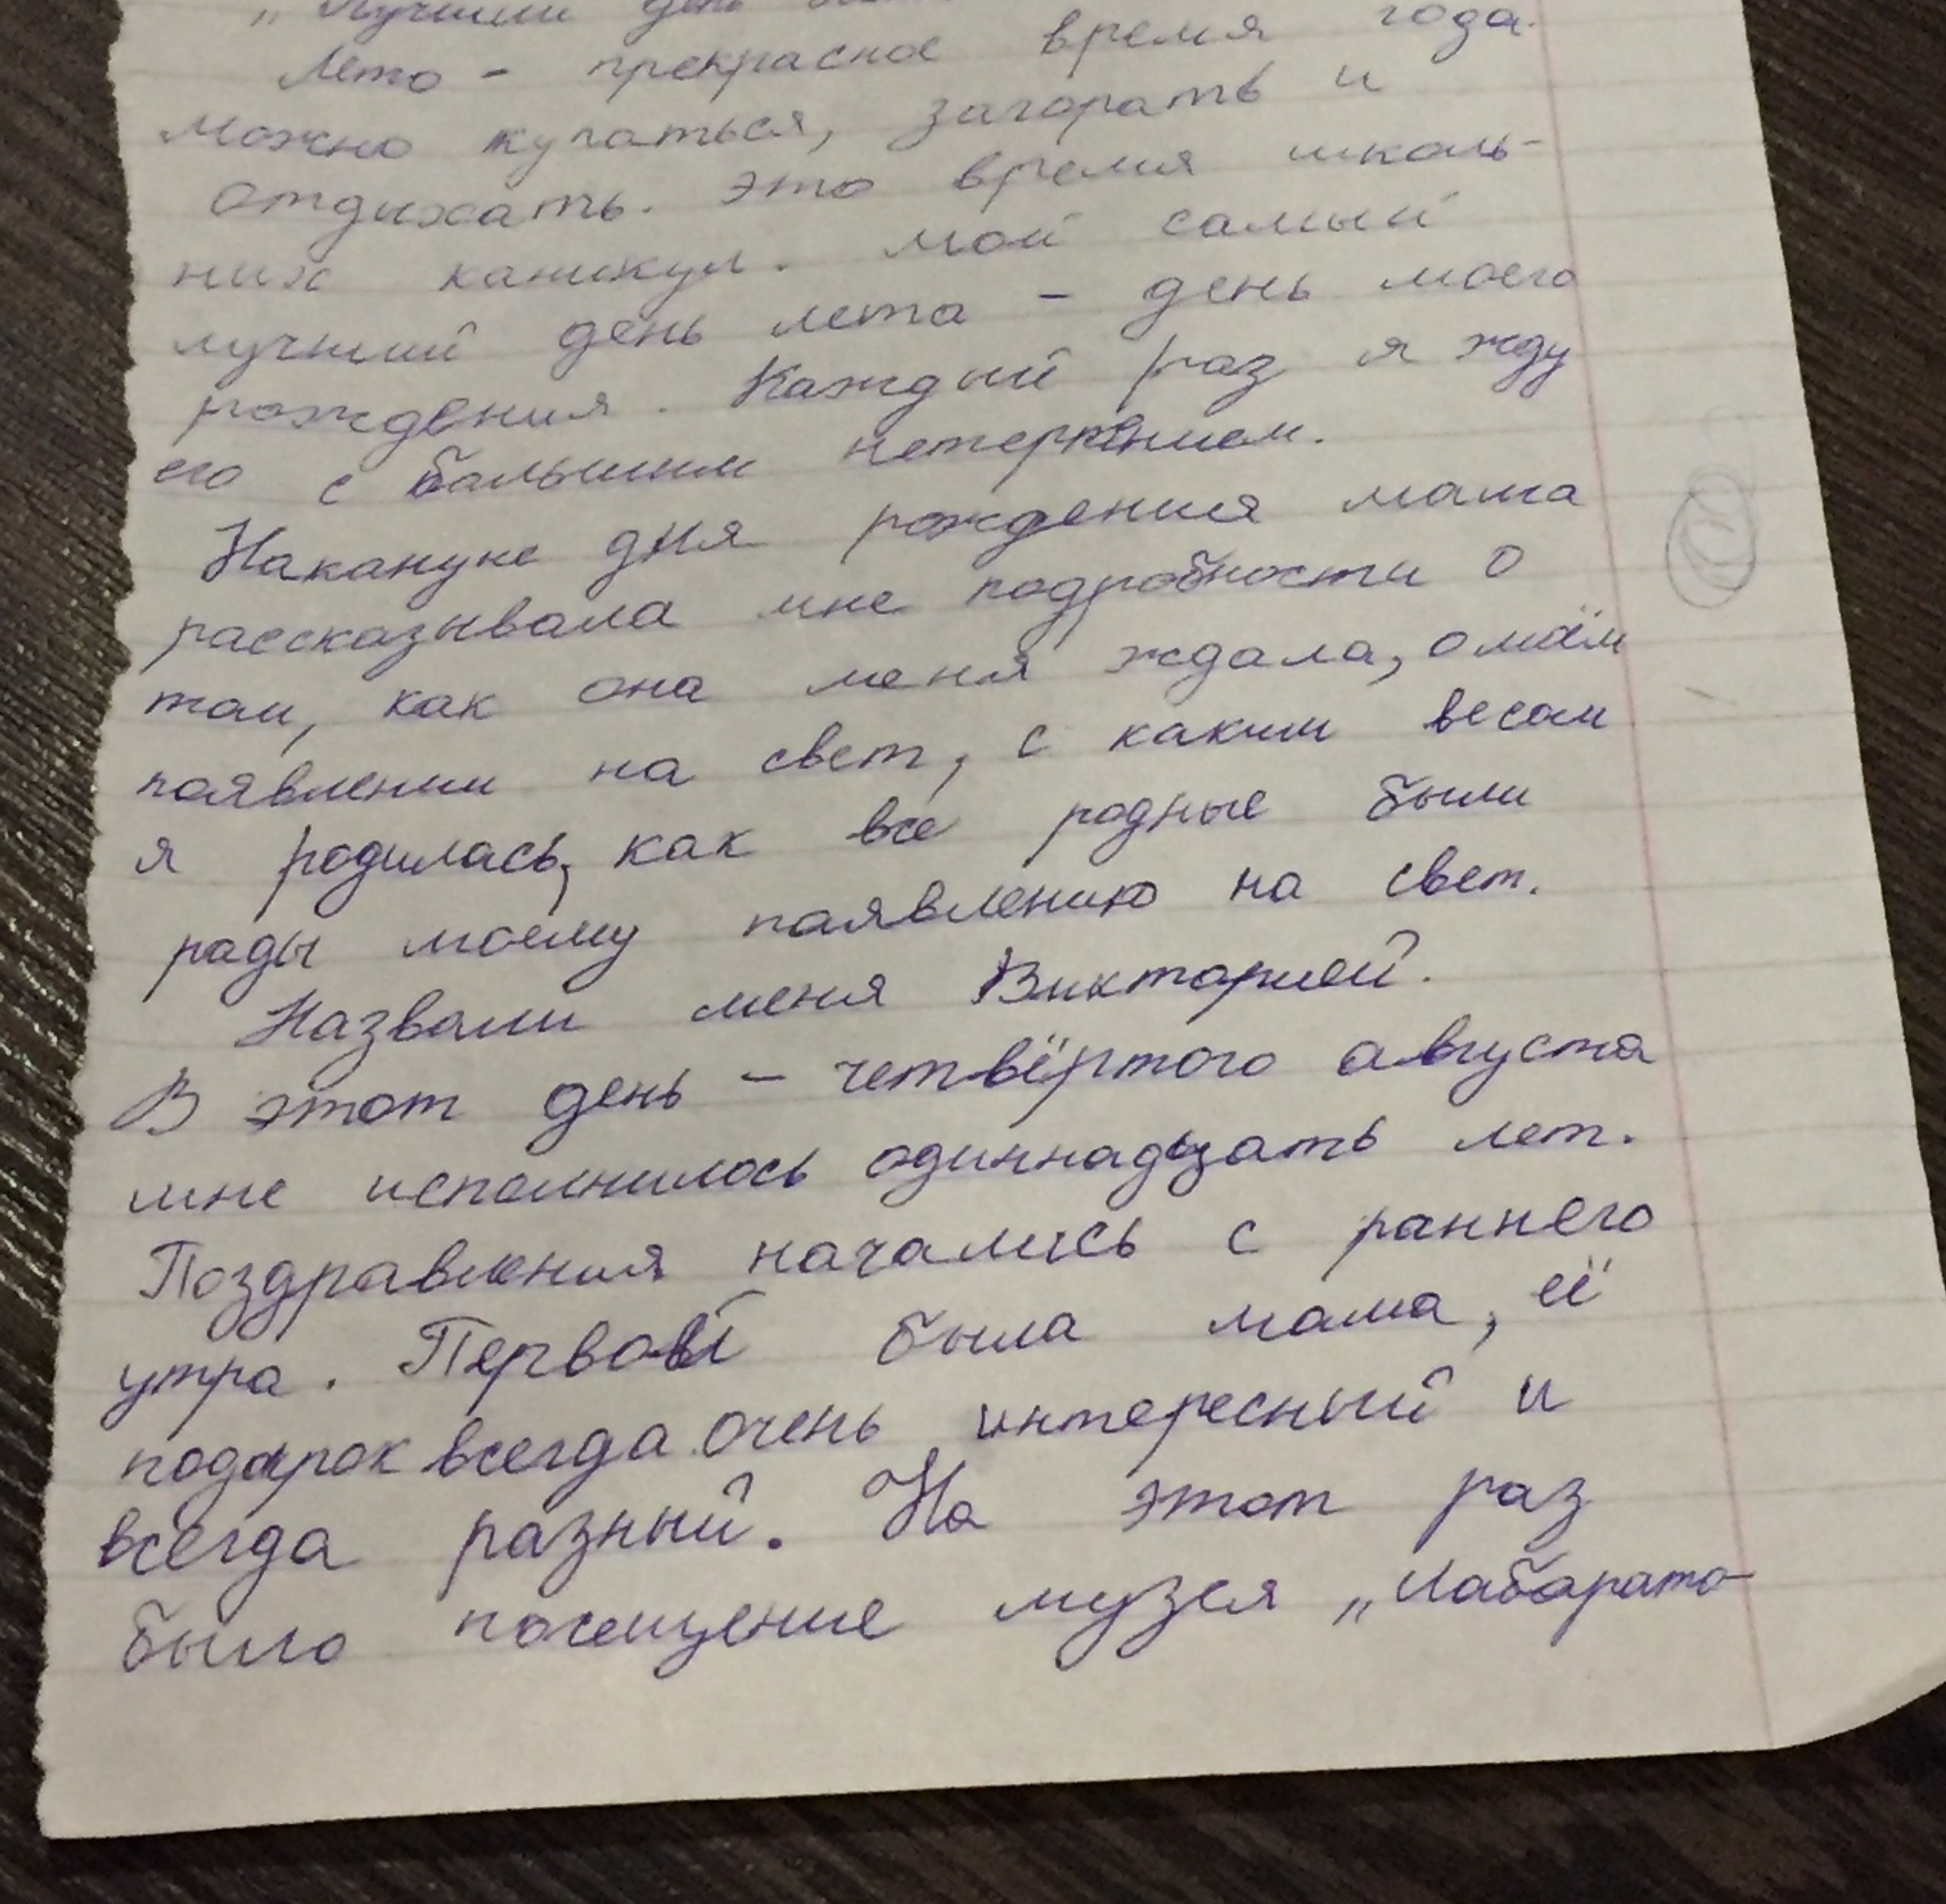 „Лучший день
Лето - прекрасное время года.
Можно купаться, загорать и
отдыхать. Это время школь-
них каникул. Мой самый
лучший день лета - день моего
рождения. Каждый раз я жду
его с большим нетерпением.
Накануне дня рождения мама
рассказывала мне подробности о
том, как она меня ждала, о моём
паявлении на свет, с каким весом
я родилась, как все родные были
рады моему паявлению на свет.
Назвали меня Викторией.
В этот день - четвёртого августа
мне исполнилось одиннадцать лет.
Поздравления начались с раннего
утра. Первой была мама, её
подарок всегда очень интересный и
всегда разный. На этот раз
было посещение музея „Лабарато-